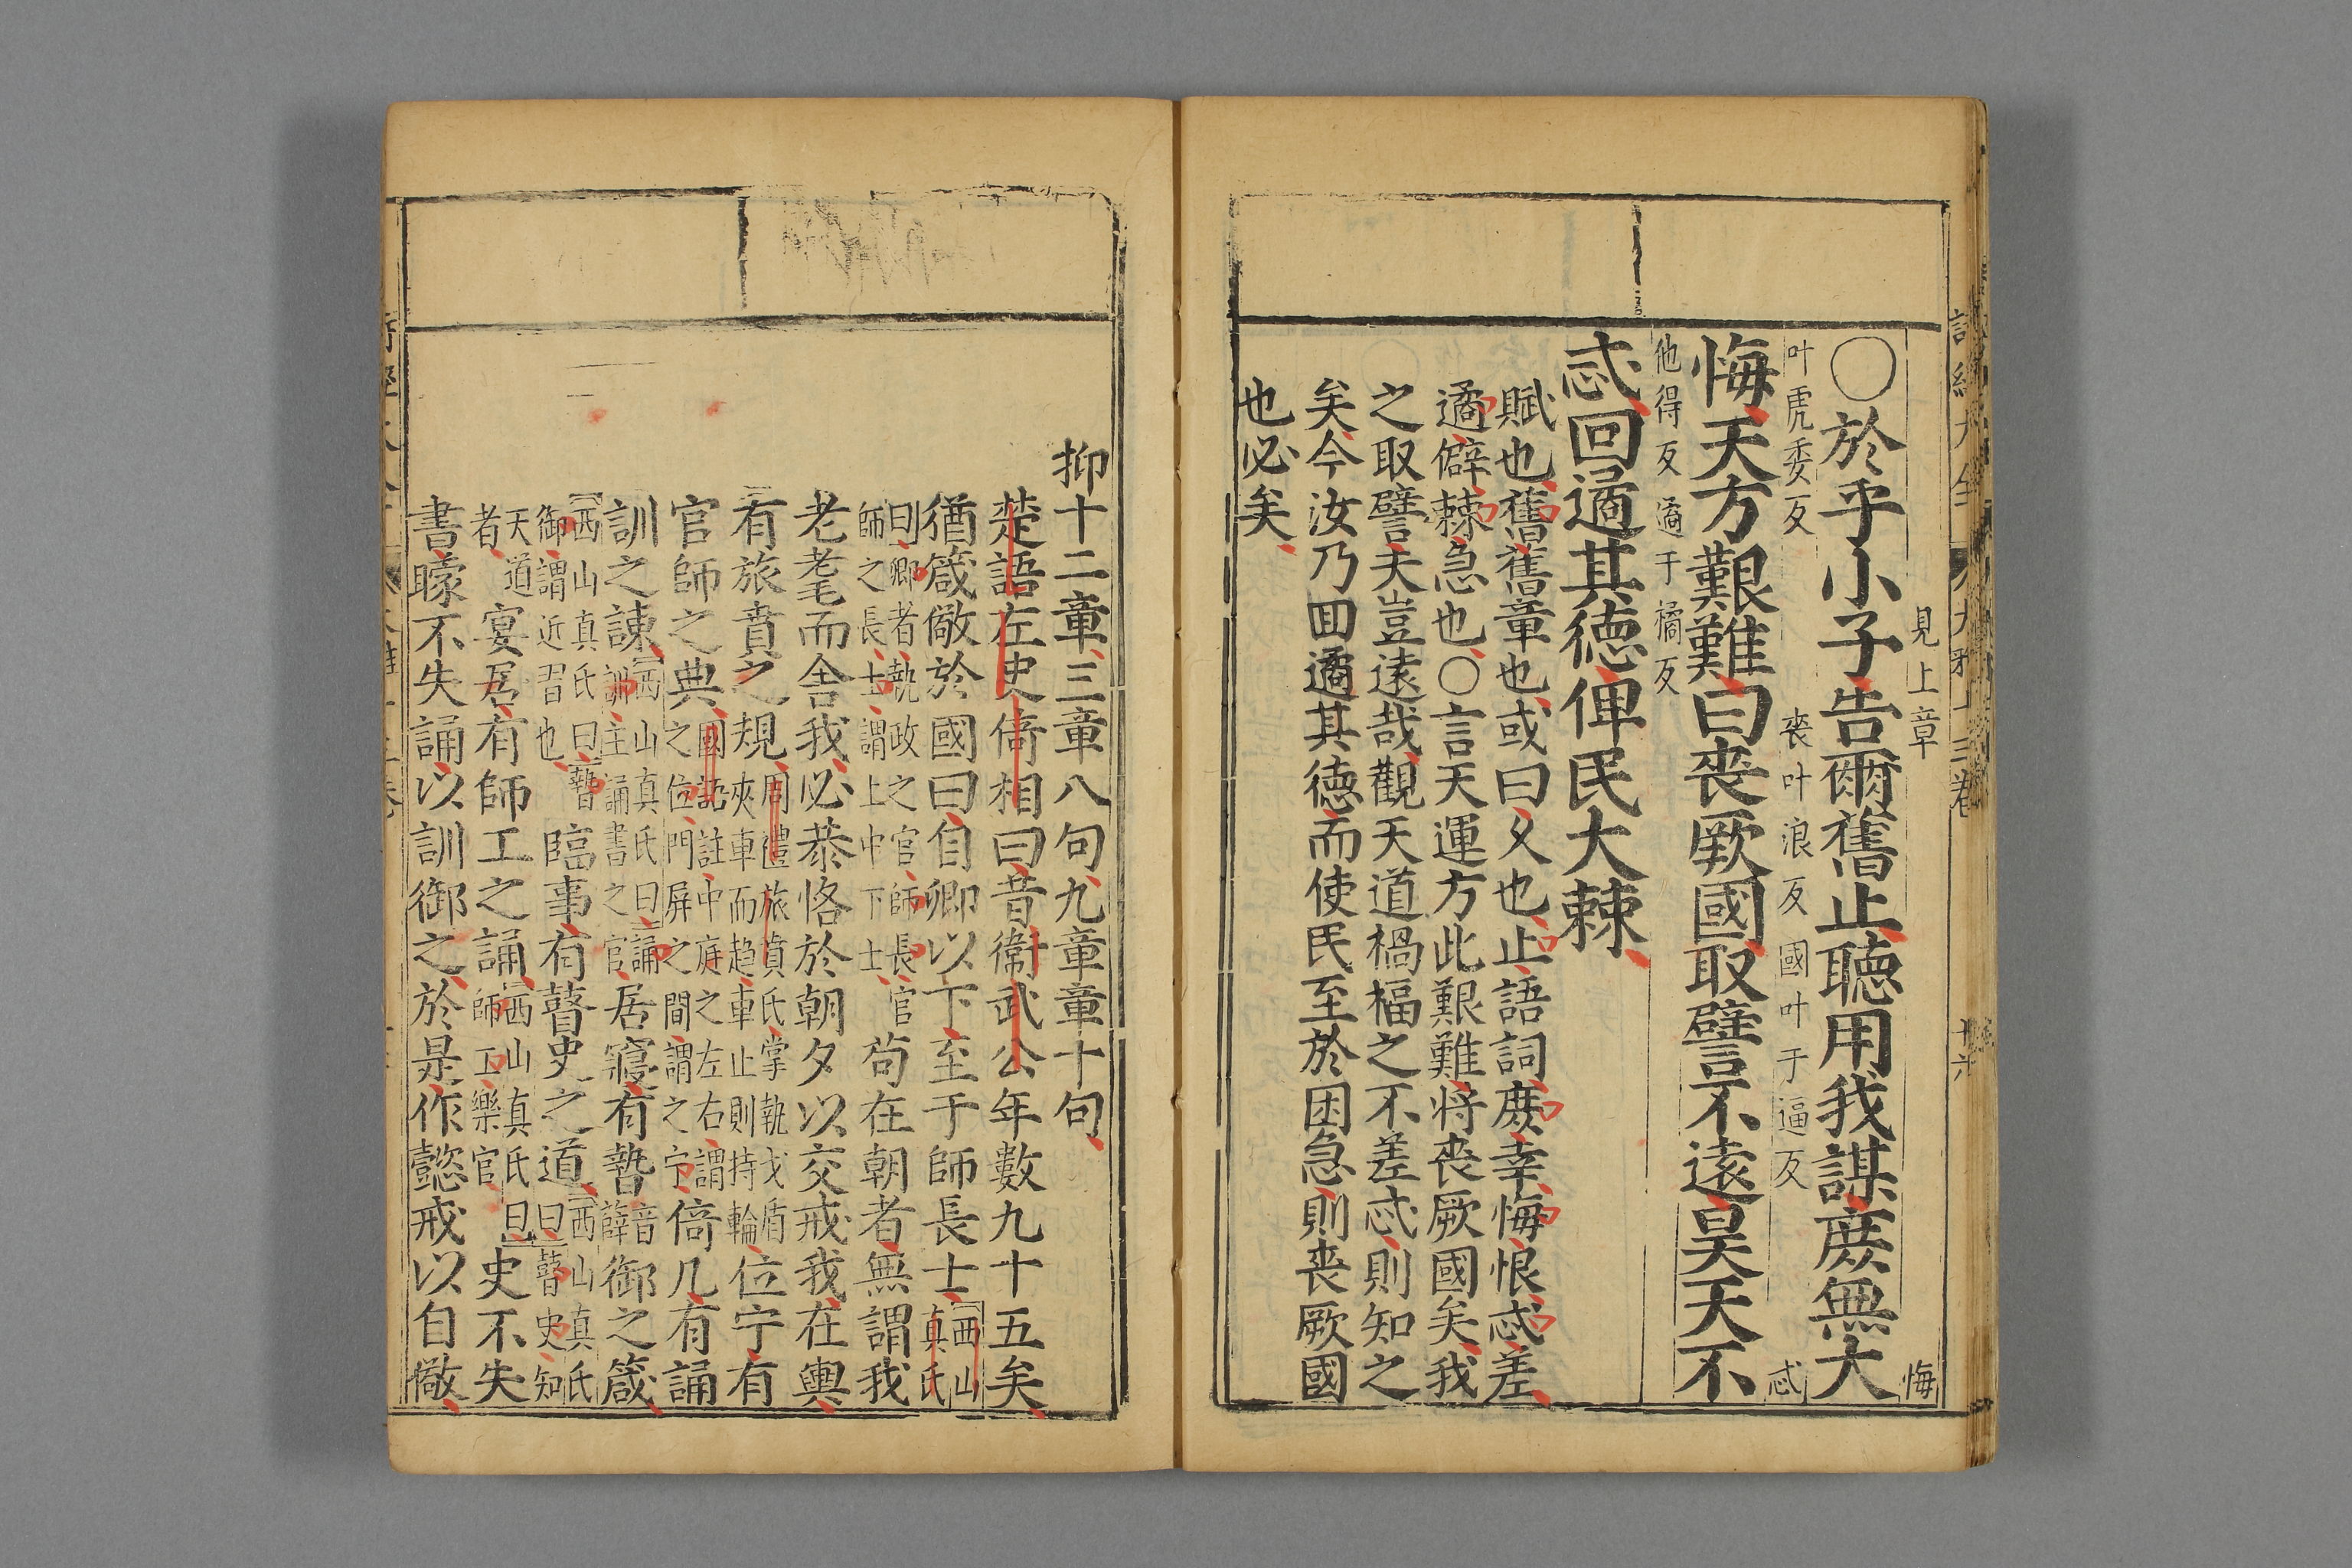 見上章
悔
○於乎小子告爾舊止聽用我謀庶無大
叶虎委反
喪叶浪反國叶于逼反
忒
悔天方艱難曰喪厥國取譬不遠昊天不
他得反遹于橘反
忒回遹其德俾民大棘
賦也舊舊章也或曰乆也止語詞庶幸悔恨忒差
遹僻棘急也○言天運方此艱難將喪厥國矣我
之取譬夫豈遠哉觀天道禍福之不差忒則知之
矣今汝乃囬遹其德而使民至於困急則喪厥國
也必矣
抑十二章三章八句九章章十句
楚語左史倚相曰昔衛武公年數九十五矣
猶箴儆於國曰自卿以下至于師長士
西山
真氏
曰卿者執政之官師長官
師之長士謂上中下士
苟在朝者無謂我
老耄而舍我必恭恪於朝夕以交戒我在輿
有旅賁之規
周禮旅賁氏掌執戈盾
夾車而趨車止則持輪
位宁有
官師之典
國語註中庭之左右謂
之位門屏之間謂之宁
倚几有誦
訓之諫
西山真氏曰誦
訓主誦書之官
居寢有暬
音
薛
御之箴
西山真氏曰暬
御謂近習也
臨事有瞽史之道
西山真氏
曰瞽史知
天道
者
宴居有師工之誦
西山真氏曰
師工樂官
史不失
書矇不失誦以訓御之於是作懿戒以自儆